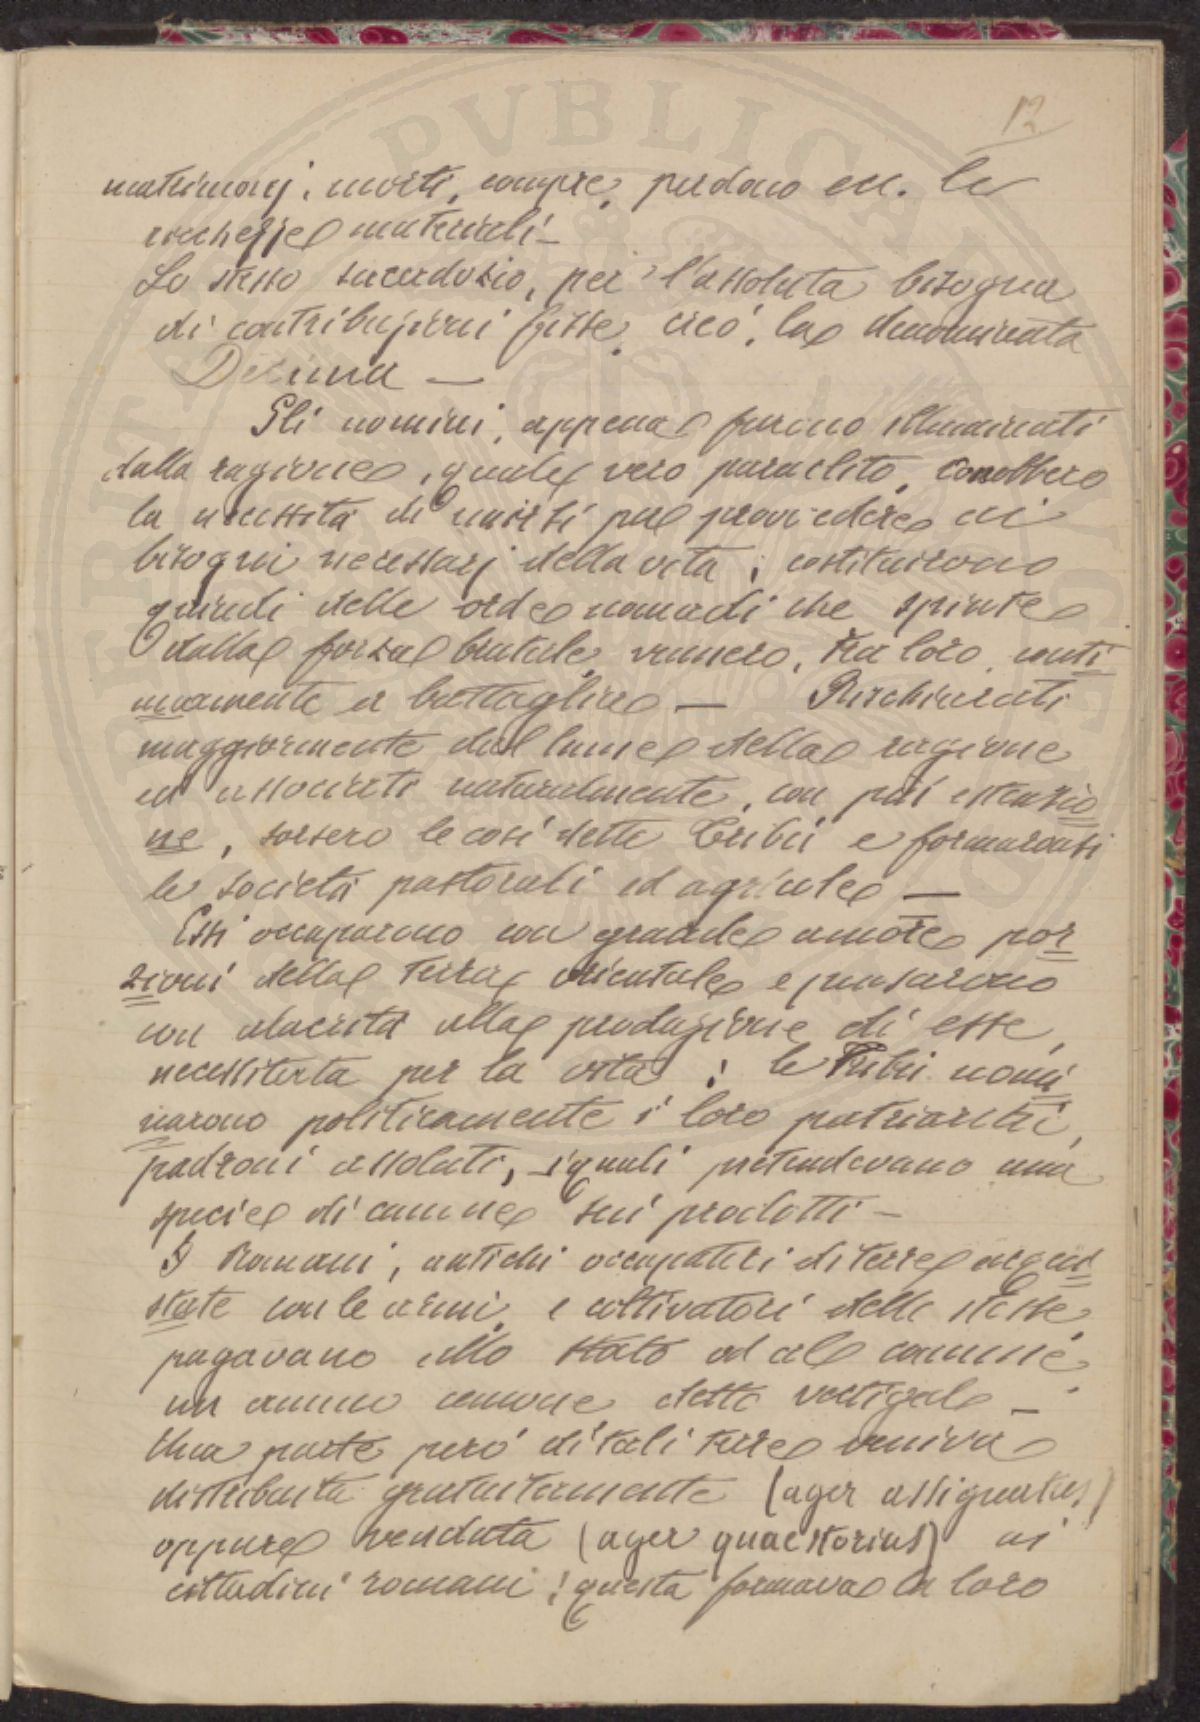 12
matrimonj, morti, compre, perdono ecc. le
ricchezze materiali —
Lo stesso sacerdozio, per l'assoluta bisogna
di contribuzioni fisse, cieó, la denominata
Decima —
Gli uomini, appena furono illuminati
dalla ragione, quale vero paraclito, conobbero
la necessitá di unirsi per provvedere ai
bisogni necessarj della vita; costituirono
quindi delle orde nomadi che spinte
dalla forza brutale vennero, tra loro, conti
nuamente a battaglia — Rischiarati
maggiormente dal lume della ragione
ed associati naturalmente, con piú estensio
ne, sorsero le cosí dette Tribú e formaronsi
le societá pastorali ed agricole —
Essi occuparono con grande amore por
zioni della terra orientale e pensarono
con alacritá alla produzione di esse,
necessitata per la vita: le Tribú nomi
narono politicamente i loro patriarchi,
padroni assoluti, i quali pretendevano una
specie di canone sui prodotti —
I Romani, antichi occupatori di terre acqui
state con le armi, e coltivatori delle stesse,
pagavano allo stato od al comune,
un annuo canone detto vectigal —
Una parte peró di tali terre veniva
distribuita gratuitamente (ager assignatus)
oppure venduta (ager quaestorius) ai
cittadini romani; questa formava la loro
PVBLICA